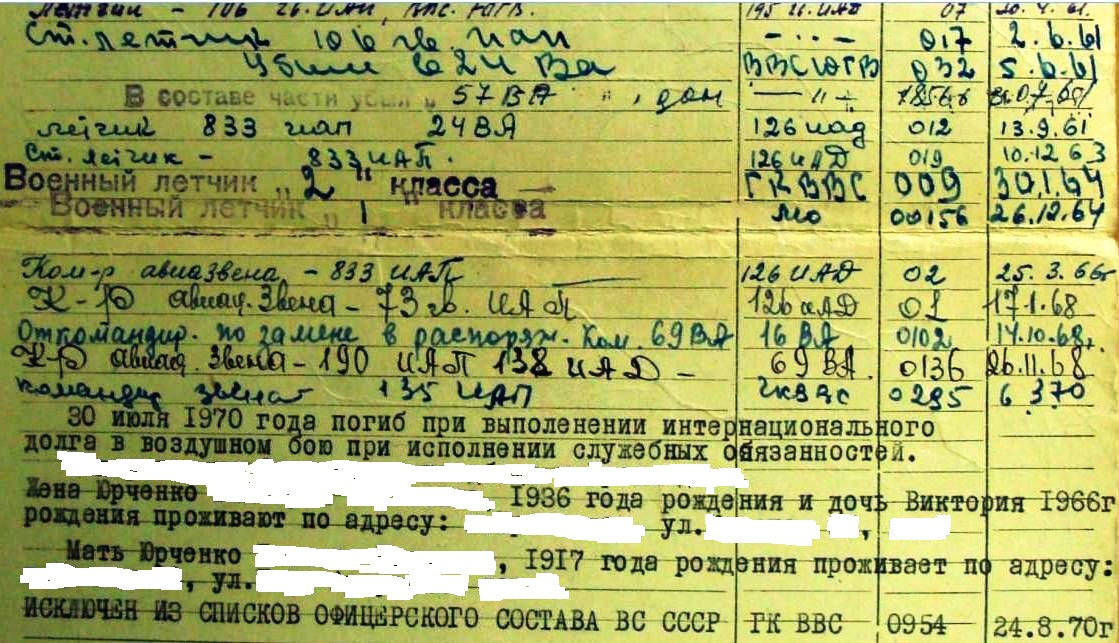 Летчик - 106 гв. ИАП, ВВС ЮГВ. 195 гв. ИАД 07
Ст. летчик 106 гв. иап - ... - 017 2.6.61
Убыл в 24 ВА ВВС ЮГВ 032 5.6.61
В составе части убыл " 57 ВА " — " —
летчик 833 иап 24 ВА 126 иад 012 13.9.61
Ст. летчик - 833 ИАП. 126 ИАД 019 10.12 63
Военный летчик „ 2 " класса ГК ВВС 009 30.1.64
Военный летчик „ 1 " класса МО 00156 26.12.64
Ком-р авиазвена - 833 ИАП 126 ИАД 02 25. 3. 66г
К-р авиац. Звена - 73 гв. ИАП 126 иАД 01 17.1.68
Откомандир. по замене в распоряж. Ком. 69 ВА 16 ВА 0102 14.10.68г.
К-р авиац. Звена - 190 ИАП 138 ИАД - 69 ВА 0136 26.11.68
Командир звена 135 ИАП гкввс 0295 6.3.70
30 июля 1970 года погиб при выполенении интернационального
долга в воздушном бою при исполнении служебных обязанностей.
Жена Юрченко 1936 года рождения и дочь Виктория 1966г
рождения проживают по адресу: ул. ,
Мать Юрченко , 1917 года рождения проживает по адресу:
, ул.
ИСКЛЮЧЕН ИЗ СПИСКОВ ОФИЦЕРСКОГО СОСТАВА ВС СССР ГК ВВС 0954 24.8.70г